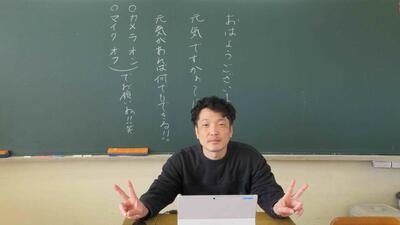 おはようござい
元気ですかぁ
元気があれば何でもできる!!
○カメラオン
○マイクオフ
でお願いね!!笑